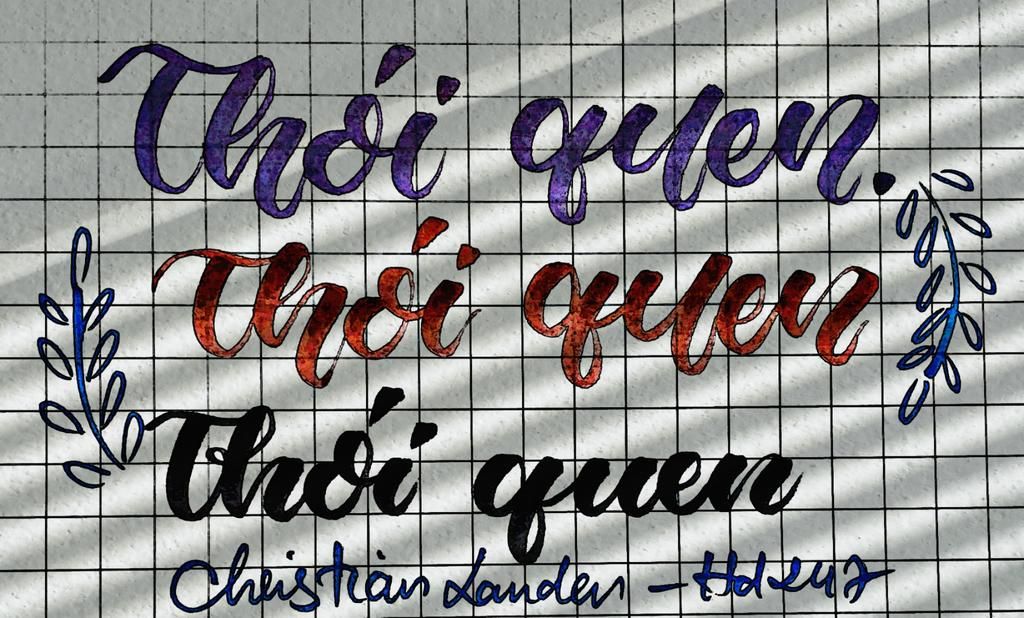 Thói quen.
Thói quen
Thói quen
Christian Landen – Hd247